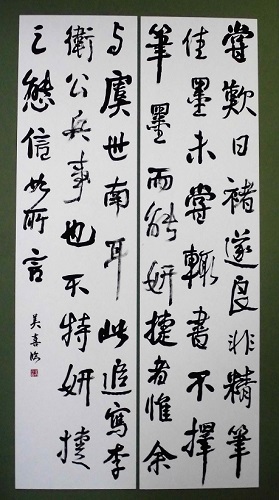 嘗歎曰褚遂良非精筆
佳墨未嘗輒書不擇
筆墨而能妍捷者惟余
与虞世南耳此追寫李
衛公兵事也不特妍捷
之態信如所言
美喜